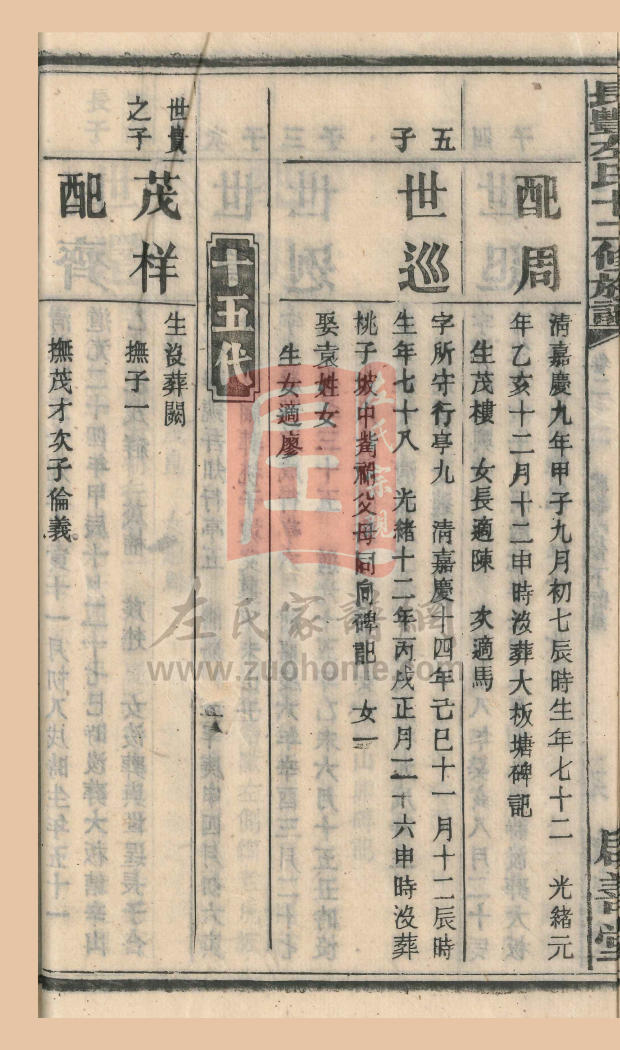 長豐左氏十二修族譜
啟善堂
配周
清嘉慶九年甲子九月初七辰時生年七十二 光緒元
年乙亥十二月十二申時沒葬大板塘碑記
生茂樓 女長適陳 次適馬
五子
世巡
字所守行亭九 清嘉慶十四年己巳十一月十二辰時
生年七十八 光緒十二年丙戌正月二十六申時沒葬
桃子坡中嘴祔父母同向碑記 女一
娶袁姓女
生女適廖
十五代
世貴
之子
茂样
生沒葬闕
撫子一
配
撫茂才次子倫義
左氏宗親
左氏家譜網
www.zuohome.com